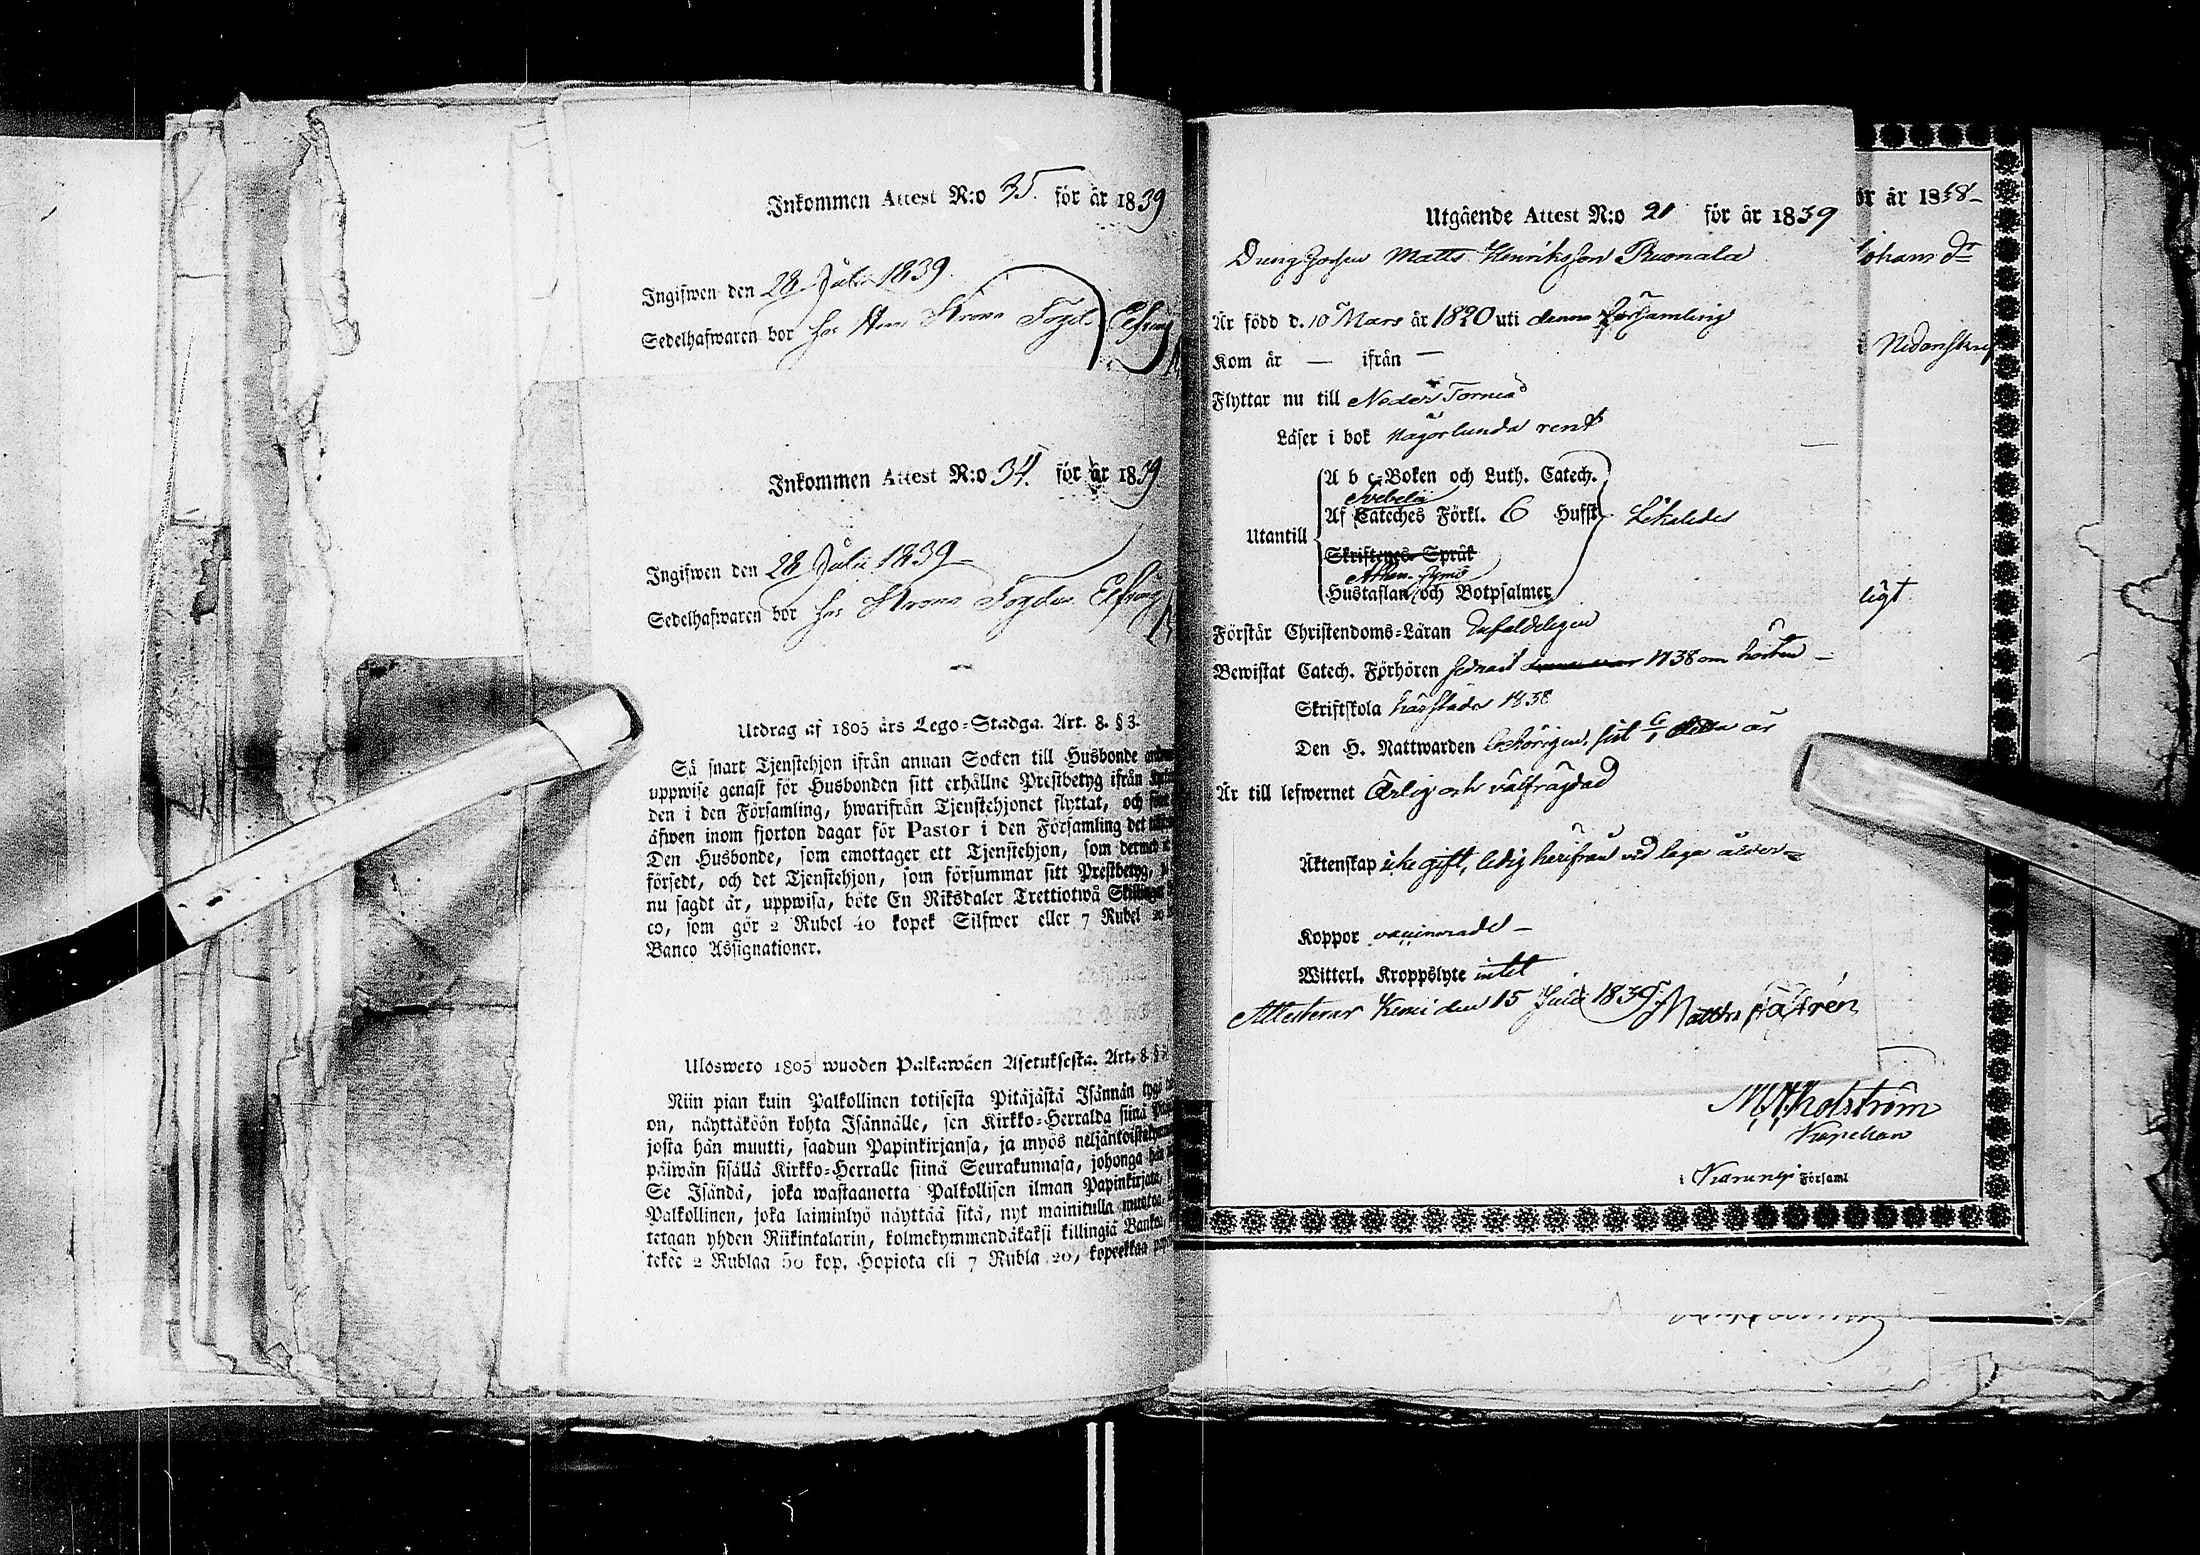 Inkommen Attest N:o 35. för år 1839
Ingifwen den 28 Julii 1839.
Sedelhafwaren bor hos Krono Fogd Elfving
Inkommen Attest N:o 34. för år 1839
Ingifwen den 28 Julii 1839
Sedelhafwaren bor hos Krono Fogden Elfving
Utdrag af 1805 års Lego-Stadga. Art. 8. § 3.
Så snart Tjenstehjon ifrån annan Socken till Husbonde
uppwise genast för Husbonden sitt erhållne Prestbetyg ifrån
den i den Församling, hwarifrån Tjenstehjonet flyttat, och
äfwen inom fjorton dagar för Pastor i den Församling det
Den Husbonde, som emottager ett Tjenstehjon, som dermed
försedt, och det Tjenstehjon, som försummar sitt Prestbetyg,
nu sagdt är, uppwisa, böte En Riksdaler Trettiotwå Skillingar
co, som gör 2 Rubel 40 kopek Silfwer eller 7 Rubel 20
Banco Assignationer.
Ulosweto 1805 wuoden Palkawäen Asetuksesta. Art. 8 §
Niin pian kuin Palkollinen totisesta Pitäjästä Isännän tygö
on, näyttäköön kohta Isännälle, sen Kirkko-Herralda siinä
josta hän muutti, saadun Papinkirjansa, ja myös neljäntoistakymmenen
päiwän sisällä Kirkko-Herralle siinä Seurakunnasa, johonga hän
Se Isändä, joka wastaanotta Palkollisen ilman Papinkirjata,
Palkollinen, joka laiminlyö näyttää sitä, nyt mainitulla muotoa
tetaan yhden Riikintalarin, kolmekymmendäkaksi killingiä Banko,
tekee 2 Rublaa 50 kop. Hopiota eli 7 Rubla 20, kopeekkaa
Utgående Attest N:o 21 för år 1839
Matts Henriksson Ruonala
Är född d. 10 Mars år 1820 uti denna Församling
Kom år — ifrån —
Flyttar nu till Neder Torneå
Läser i bok någorlunda rent
A b c-Boken och Luth. Catech.
Svebelii
Af Cateches Förkl. 6 Hufst.
Likaledes
Utantill
Skriftenes Språk
Athan. Symb.
Hustaflan och Botpsalmer
Förstår Christendoms-Läran Enfaldeligen
Bewistat Catech. Förhören sednast 1838 om hösten —
Skriftskola härstädes 1838
Den H. Nattwarden behörigen, sist detta år
Är till lefwernet Ärlig och välfrägdad
Äktenskap icke gift, ledig härifrån vid laga ålder
Koppor vaccinerade —
Witterl. Kroppslyte intet
Attesterar Kemi den 15 Julii 1839. Matths Castrén
ör år 1838
Johans dr
ligt
Holström
Kapellan
i Karungi Församl